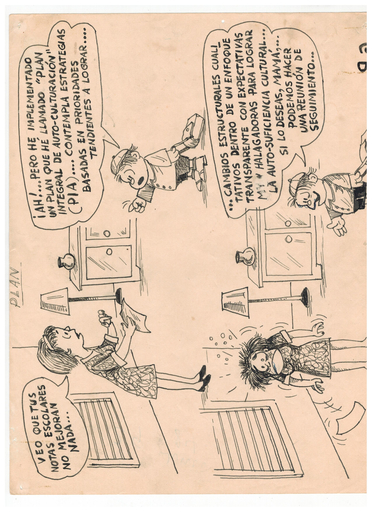 PLAN
VEO QUE TUS
NOTAS ESCOLARES
NO MEJORAN
NADA...
¡AH!....PERO HE IMPLEMENTADO
UN PLAN QUE HE LLAMADO "PLAN
INTEGRAL DE AUTO-CULTURACIÓN"
(PIA)....CONTEMPLA ESTRATEGIAS
BASADAS EN PRIORIDADES
TENDIENTES A LOGRAR....
...CAMBIOS ESTRUCTURALES CUALI
TATIVOS DENTRO DE UN ENFOQUE
TRANSPARENTE CON EXPECTATIVAS
MUY HALAGADORAS PARA LOGRAR
LA AUTO-SUFICIENCIA CULTURAL...
SI LO DESEAS, MAMÁ,...
PODEMOS HACER
UNA REUNIÓN DE
SEGUIMIENTO...